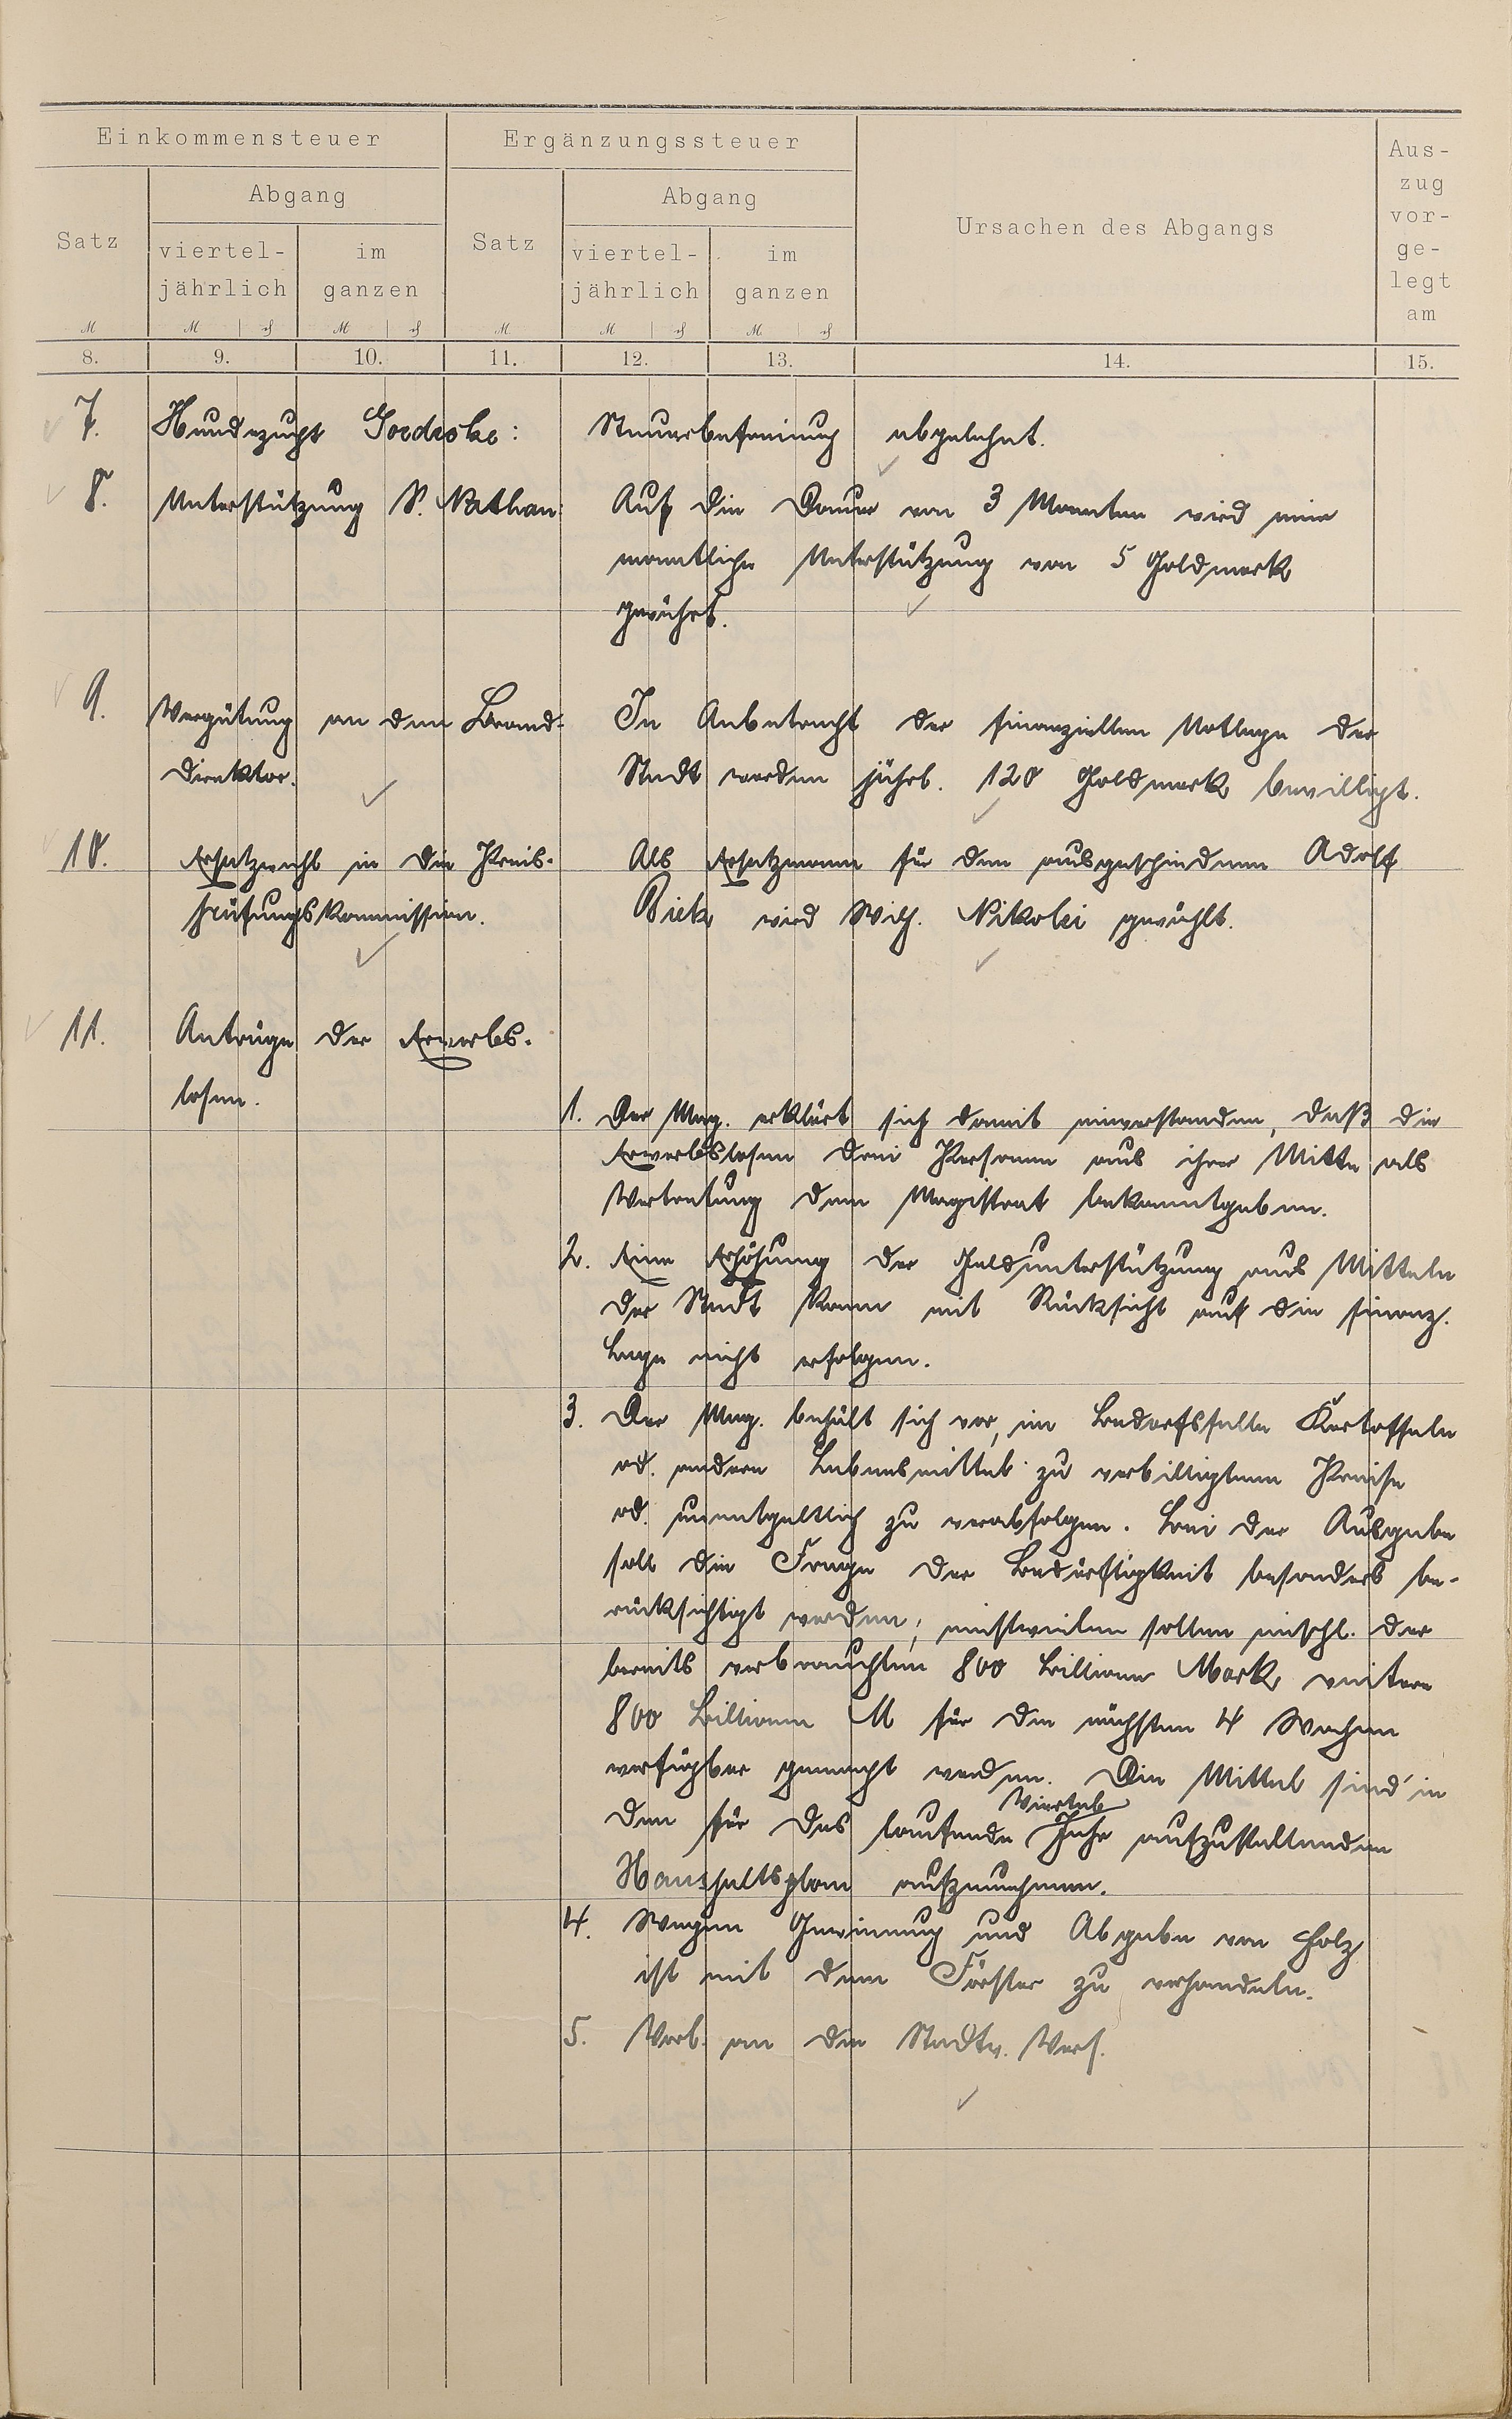 Einkommensteuer
Ergänzungssteuer
Ursachen des Abgangs
Aus-
zug
vor-
ge-
legt
am
Satz
Abgang
Satz
Abgang
viertel-
jährlich
im
ganzen
viertel-
jährlich
im
ganzen
M
M ₰
M ₰
M
M ₰
M ₰
8. 9. 10. 11. 12. 13. 14. 15.
7. Hundezucht Goedecke: Steuerbefreiung abgelehnt.
8. Unterstützung S. Nathan: Auf die Dauer von 3 Monaten wird eine
monatliche Unterstützung von 5 Goldmark
gewährt.
9. Vergütung an den Brand- In Anbetracht der finanziellen Notlage der
direktor. Stadt werden jährl. 120 Goldmark bewilligt.
10. Ersatzwahl in die Preis- Als Ersatzmann für den ausgeschiedenen Adolf
prüfungskommission. Biek wird Wilh. Nikolai gewählt.
11. Anträge der Erwerbs-
losen.
1. Der Mag. erklärt sich damit einverstanden, daß die
Erwerbslosen drei Personen aus ihrer Mitte als
Vertretung dem Magistrat bekanntgeben.
2. Eine Erhöhung der Geldunterstützung aus Mitteln
der Stadt kann mit Rücksicht auf die finanz.
Lage nicht erfolgen.
3. Der Mag. behält sich vor, im Bedarfsfalle Kartoffeln
od. andere Lebensmittel zu verbilligtem Preise
od. unentgeltlich zu verabfolgen. Bei der Ausgabe
soll die Frage der Bedürftigkeit besonders be-
rücksichtigt werden; einstweilen sollen einschl. der
bereits verbrauchten 800 Billionen Mark weitere
800 Billionen M für die nächsten 4 Wochen
verfügbar gemacht werden. Die Mittel sind in
Viertel
den für das laufende Jahr aufzustellenden
Haushaltsplan aufzunehmen.
4. Wegen Gewinnung und Abgabe von Holz
ist mit dem Förster zu verhandeln.
5. Vorl. an die Stadtv. Vers.